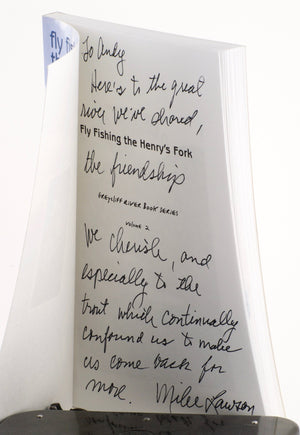 fly fis
th
To Andy
Here's to the great
river we've shared,
Fly Fishing the Henry's Fork
the friendship
GREYCLIFF RIVER BOOK SERIES
VOLUME 2
We cherish, and
especially to the
trout which continually
confound us to make
us come back for
more. Mike Lawson